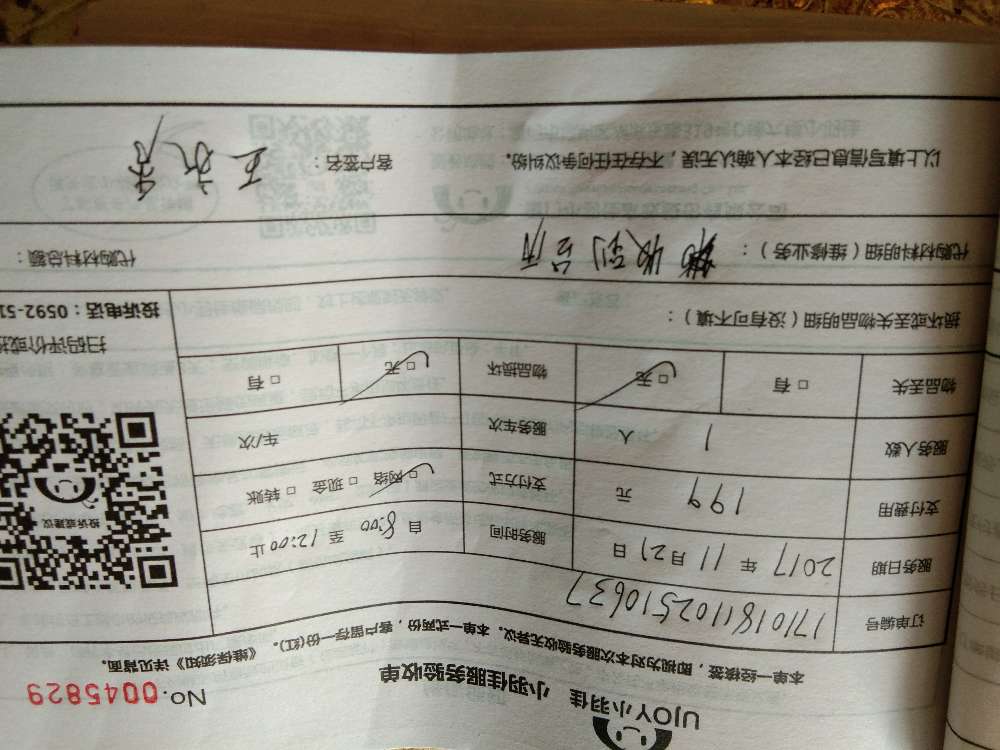 UJOY小羽佳 小羽佳服务验收单
No.0045829
本单一经接签，即视为对本次服务验收无异议。本单一式两份，客户留存一份(红)。《维保须知》详见背面。
订单编号 171018110251063
服务日期 2017 年 11 月 21 日 服务时间 自 8:00 至 12:00 止
支付费用 199 元 支付方式 □ 网络 □ 现金 □ 转账
服务人数 1 人 服务车次 车/次
物品丢失 □ 有 □ 无 物品损坏 □ 无 □ 有
投诉或建议
扫码评价或投
投诉电话：0592-51
损坏或丢失物品明细（没有可不填）：
代购材料明细（维修业务）： 收到台历
代购材料总额：
以上填写信息已经本人确认无误，不存在任何争议纠纷。
客户签名： 王永